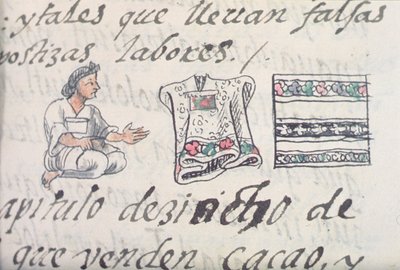 : ytales que lleuan falsas
postizas labores./
apitulo de
que venden cacao, y